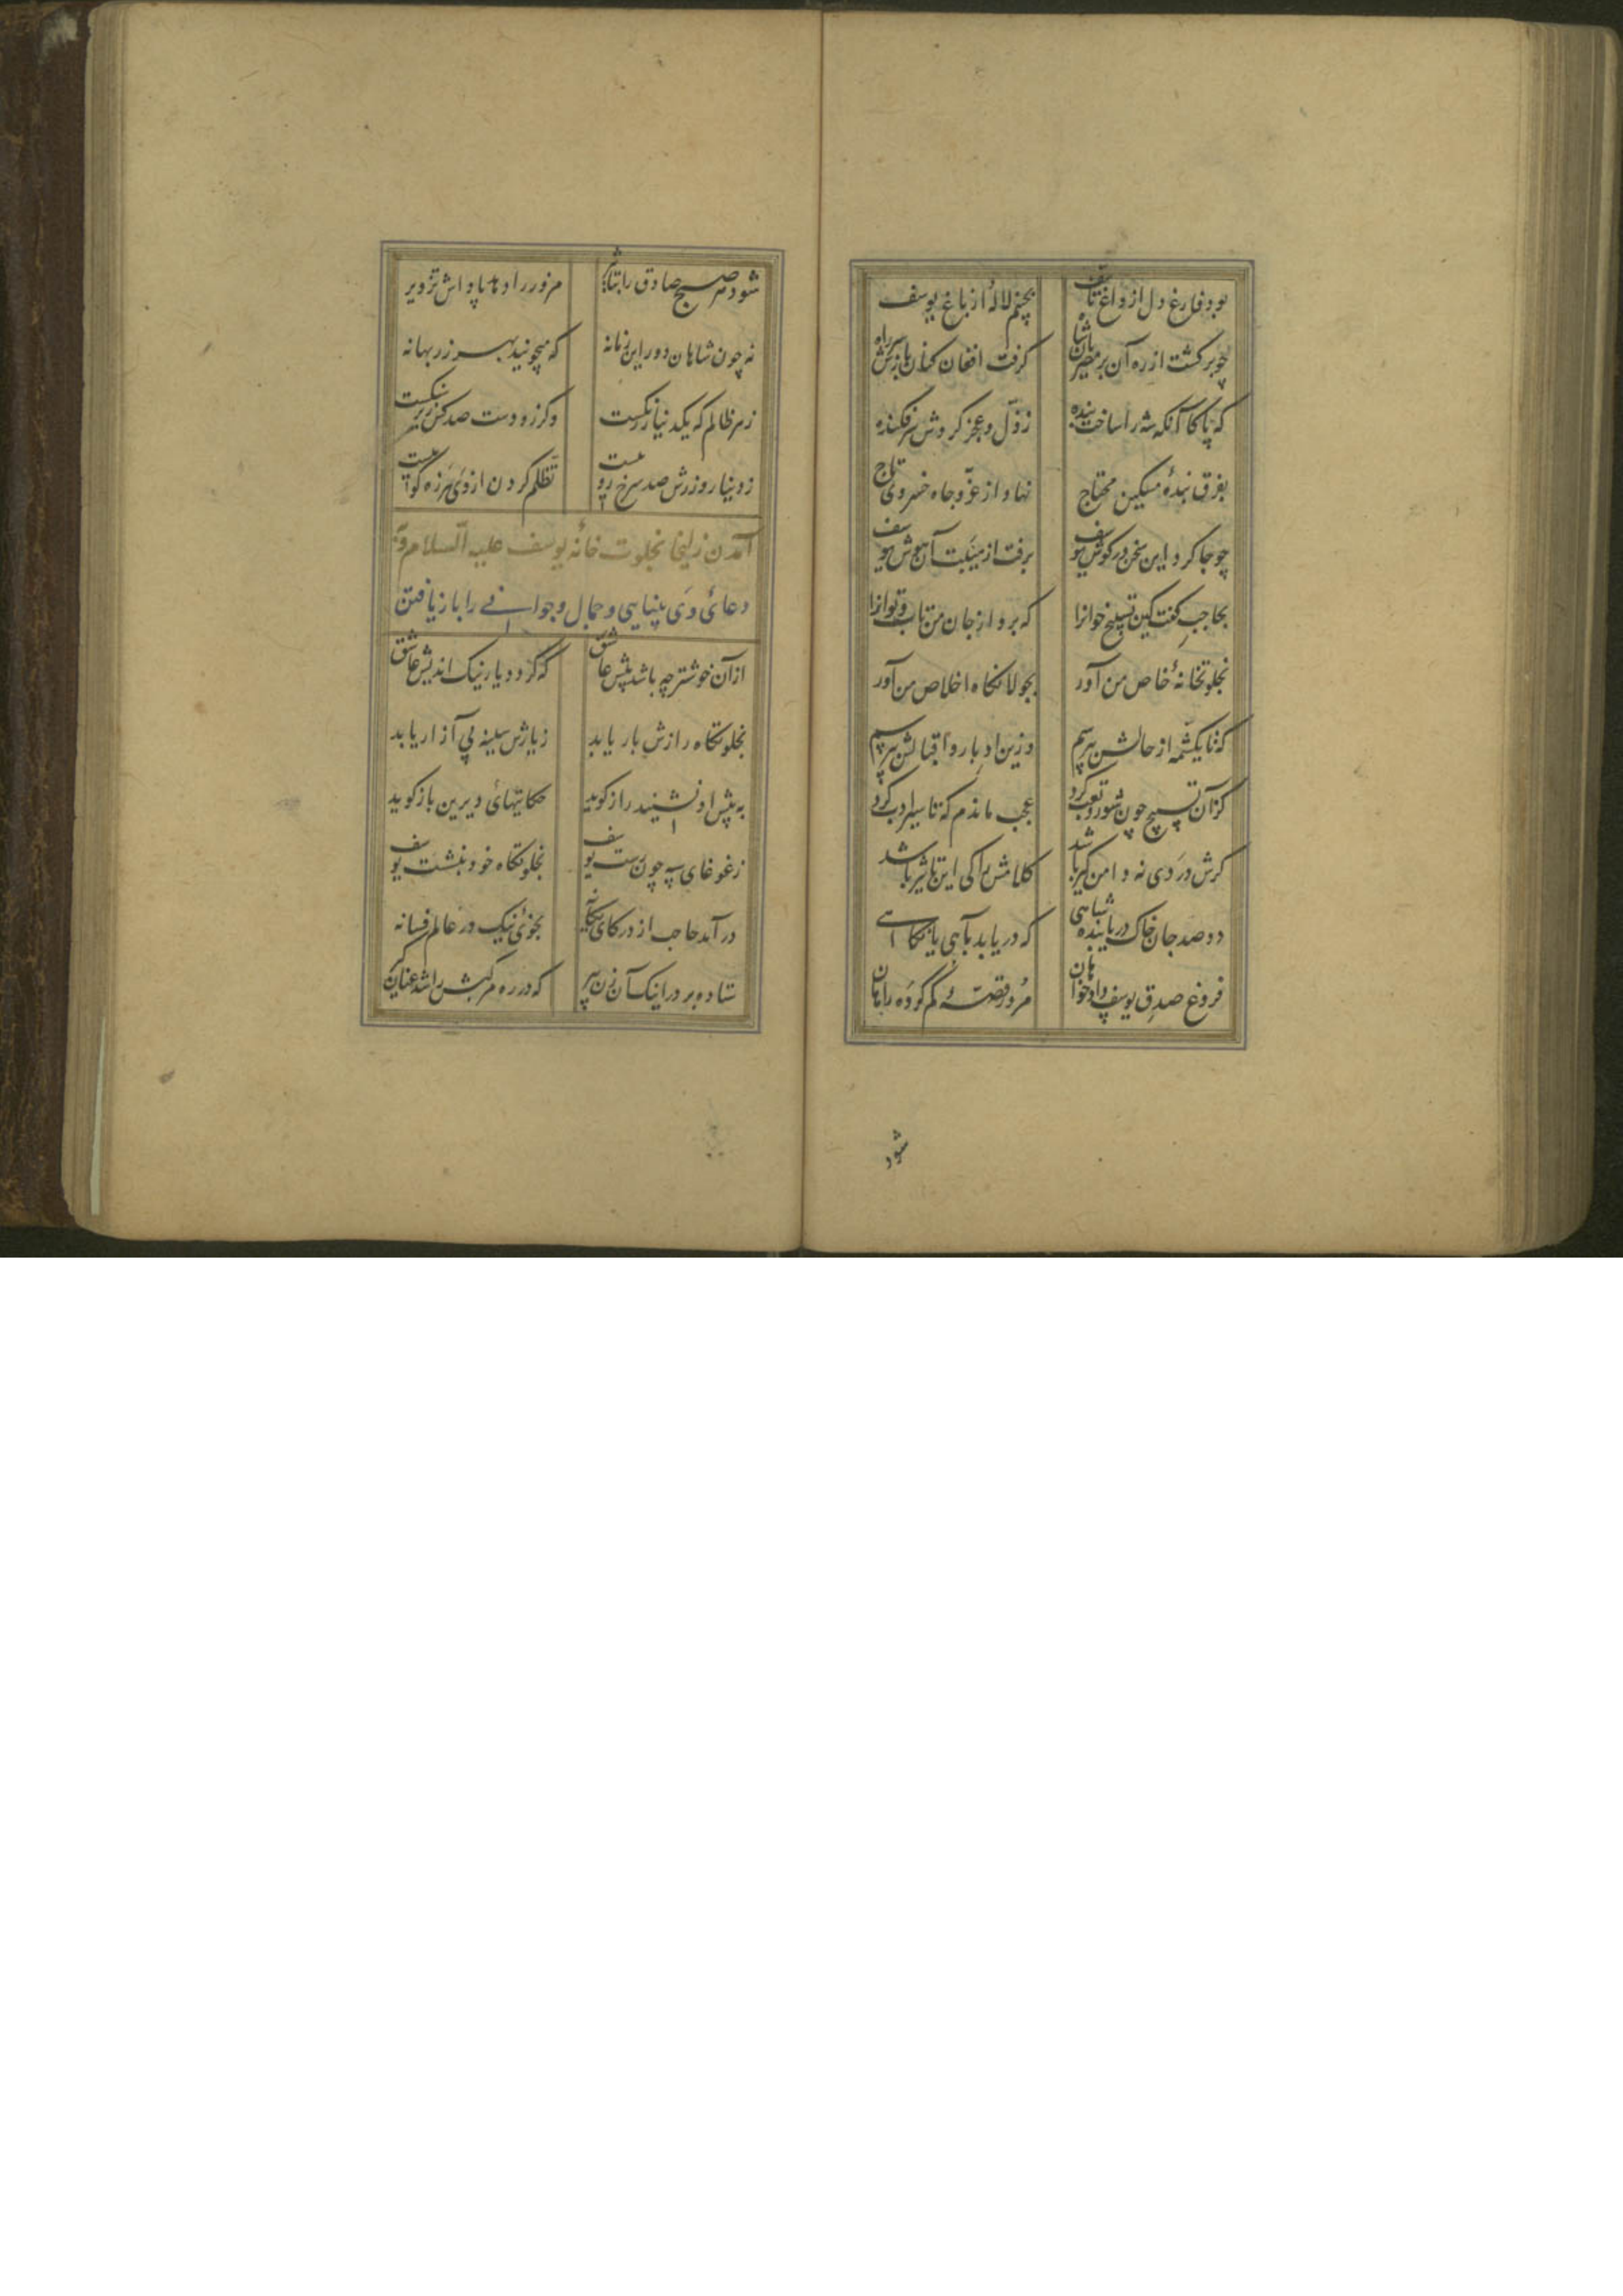 بود فارغ دل از داغ تأسف بچینم لالهٔ از باغ یوسف
چو برگشت از ره آن بر مصریان شاه گرفت افغان کنان بازش سر راه
که پاکا آنکه شه را ساخت بنده ز ذل و عجز کردش سرفکنده
بفرق بندهٔ مسکین محتاج نهاد از عز و جاه خسروی تاج
چو جا کرد این سخن در گوش یوسف برفت از هیبت آن هوش یوسف
بحاجب گفت کین تسبیح خوانرا که برد از جان من تاب و توانرا
بخلوتخانهٔ خاص من آور بجولانگاه اخلاص من آور
که تا یکشمه از حالش بپرسم وزین ادبار و اقبالش بپرسم
کزان تسبیح چون شور و تعب کرد عجب ماندم که تاسیرا دب کرد
گرش دردی نه دامن گیر باشد کلامش را کی این تاثیر باشد
دو صد جان خاک دریابنده شاهی که دریابد بآهی یا نگاهی
فروغ صدق یوسف دادخواهان مزور قصهٔ گم کرده راهان
شود
شود بر صبح صادق را بتاثیر مزور را دهد پاداش تزویر
نه چون شاهان دور این زمانه که میجویند بهر زر بهانه
زهر ظالم که یکدینار زر گست وگر زو دست صد کس زیر سنگست
ز دینار و زرش صد سرخ روییست تظلم کردن از وی هرزه گوییست
آمدن زلیخا بخلوت خانهٔ یوسف علیه السلام و به
دعای وی بینایی و جمال و جوانی را باز یافتن
از آن خوشتر چه باشد پیش عاشق که گردد یار نیک اندیش عاشق
بخلوتگاه رازش بار یابد ز یارش سینه بی آزار یابد
به پیش او نشیند راز گوید حکایتهای دیرین باز گوید
ز غوغای سپه چون رست یوسف بخلوتگاه خود بنشست یوسف
در آمد حاجب از در کای یگانه بخوئی نیک در عالم فسانه
ستاده بر در اینک آن زن پیر که در ره مرکبش را شد عنان گیر